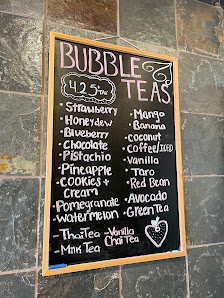 BUBBLE
TEAS
4.25+TAX
• Strawberry
• Honeydew
• Blueberry
• Chocolate
• Pistachio
• Pineapple
• COOKIES +
Cream
• Pomegranate
• Watermelon
• Mango
• Banana
• Coconut
• Coffee/ICED
• Vanilla
• Taro
• Red Bean
• Avocado
• Green Tea
- Thai Tea
- Milk Tea
- Vanilla
Chai Tea